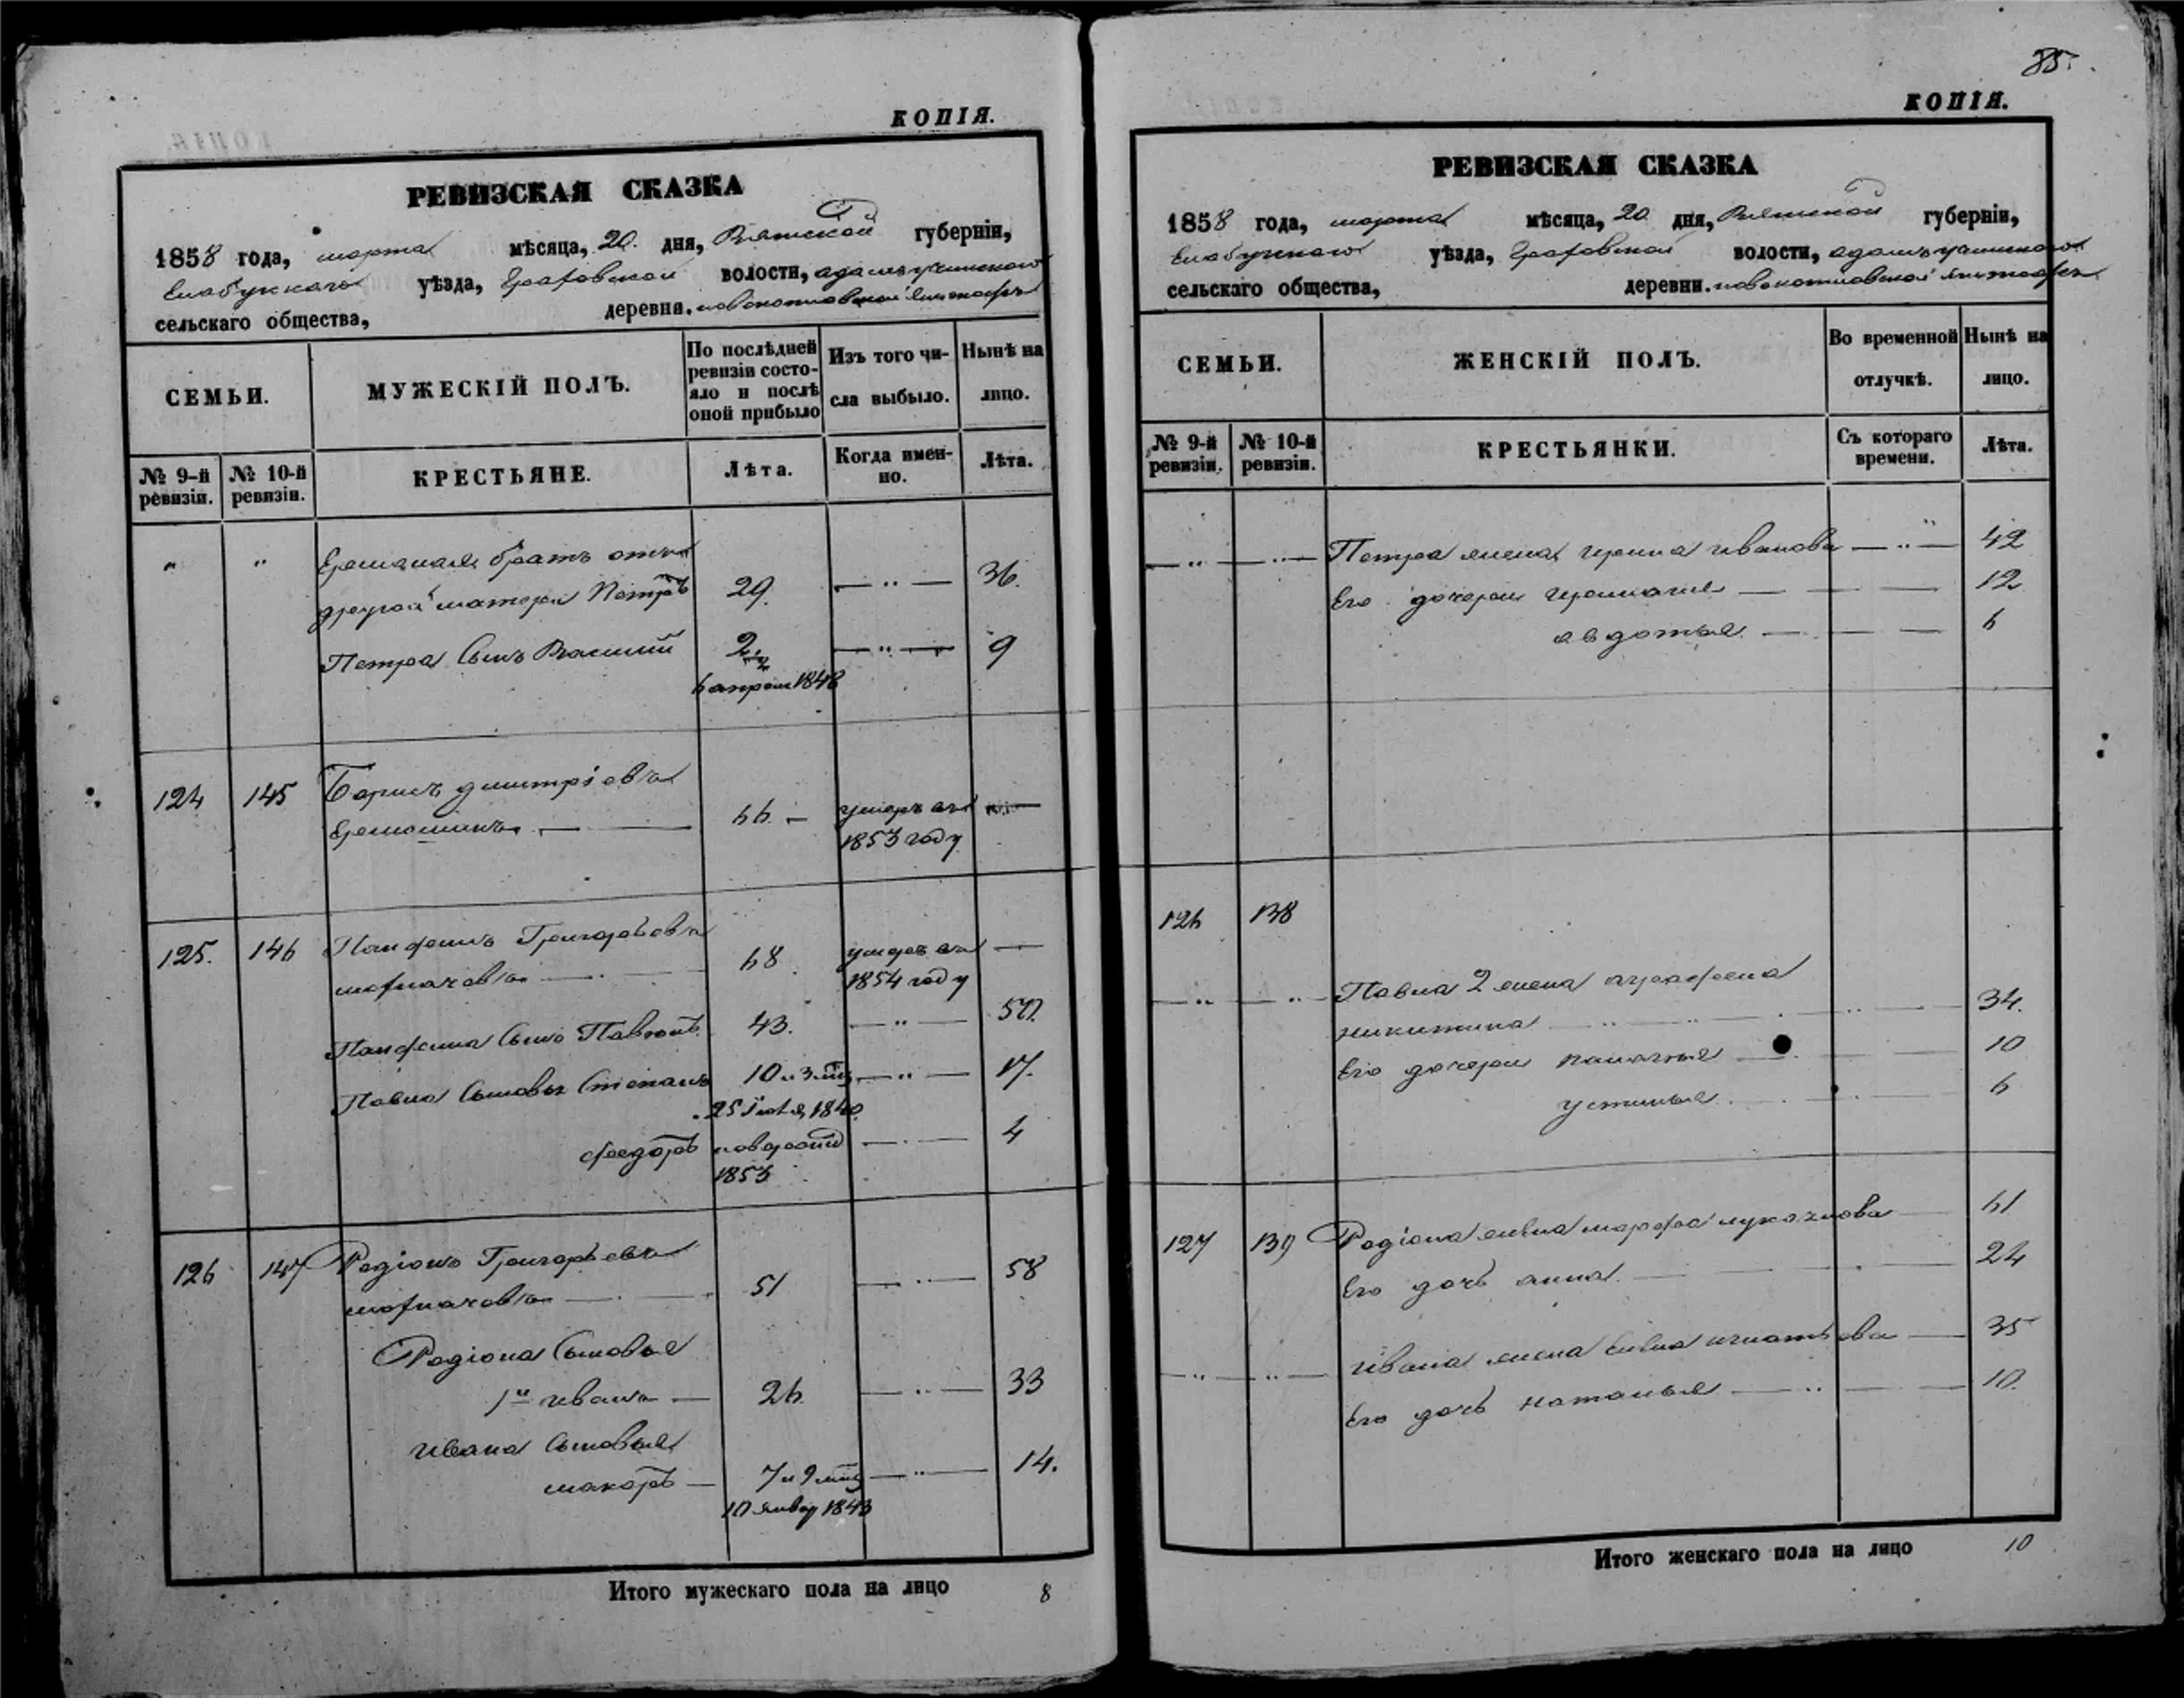 КОПІЯ.
РЕВИЗСКАЯ СКАЗКА
1858 года, марта мѣсяца, 20 дня, Вятской губерніи,
Елабужскаго уѣзда, Граховской волости,
сельскаго общества, деревни.
СЕМЬИ.
МУЖЕСКІЙ ПОЛЪ.
По послѣдней
ревизіи состо-
яло и послѣ
оной прибыло
Изъ того чи-
сла выбыло.
Нынѣ на
лицо.
№ 9-й
ревизіи.
№ 10-й
ревизіи.
КРЕСТЬЯНЕ.
Лѣта.
Когда имен-
но.
Лѣта.
" " братъ отъ
другой матери Петръ 29. — " — 36.
Петра Сынъ Василій 2 — " — 9
6 апреля 1848
124 145 Борисъ дмитріевъ
66 — умеръ въ —
1853 году
125. 146 Панфилъ Григорьевъ
68 умеръ въ —
1854 году
Панфила Сынъ Павелъ 43. — " — 50.
Павла Сыновья Степанъ 10 и 3 мѣс — " — 17.
25 1840
федоръ новорожд — 4
1853
126 147 Родіонъ Григорьевъ
51 — " — 58
Родіона Сыновья
1й иванъ — 26 — " — 33
ивана Сыновья
макаръ — 7 и 9 мѣс — " — 14.
10 январ 1843
Итого мужескаго пола на лицо 8
85.
КОПІЯ.
РЕВИЗСКАЯ СКАЗКА
1858 года, марта мѣсяца, 20 дня, Вятской губерніи,
Елабужскаго уѣзда, Граховской волости,
сельскаго общества, деревни.
СЕМЬИ.
ЖЕНСКІЙ ПОЛЪ.
Во временной
отлучкѣ.
Нынѣ на
лицо.
№ 9-й
ревизіи.
№ 10-й
ревизіи.
КРЕСТЬЯНКИ.
Съ котораго
времени.
Лѣта.
— " — " — Петра жена ирина иванова — " — 42
Его дочери — 12
авдотья — 6
126 138
— " — " — Павла 2 жена аграфена
никитина 34.
Его дочери — 10
устинья 6
127 139 Родіона жена марфа — 61
Его дочь анна — 24
— " — " — ивана жена игнатьева — 35
Его дочь наталья — " — 10.
Итого женскаго пола на лицо 10